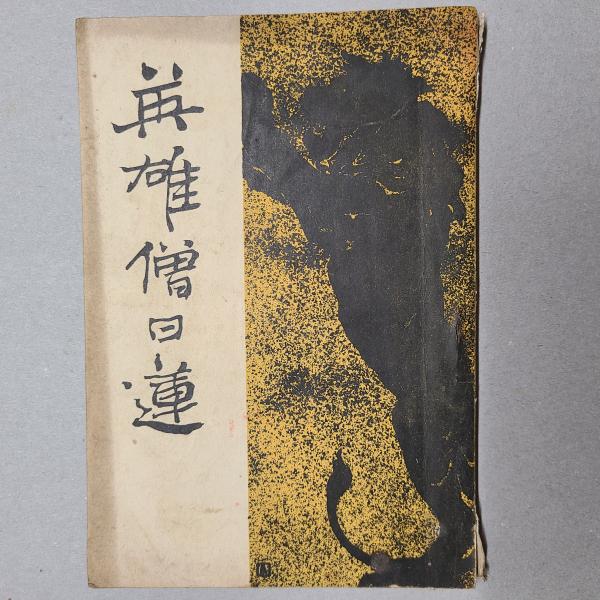 英雄僧日蓮